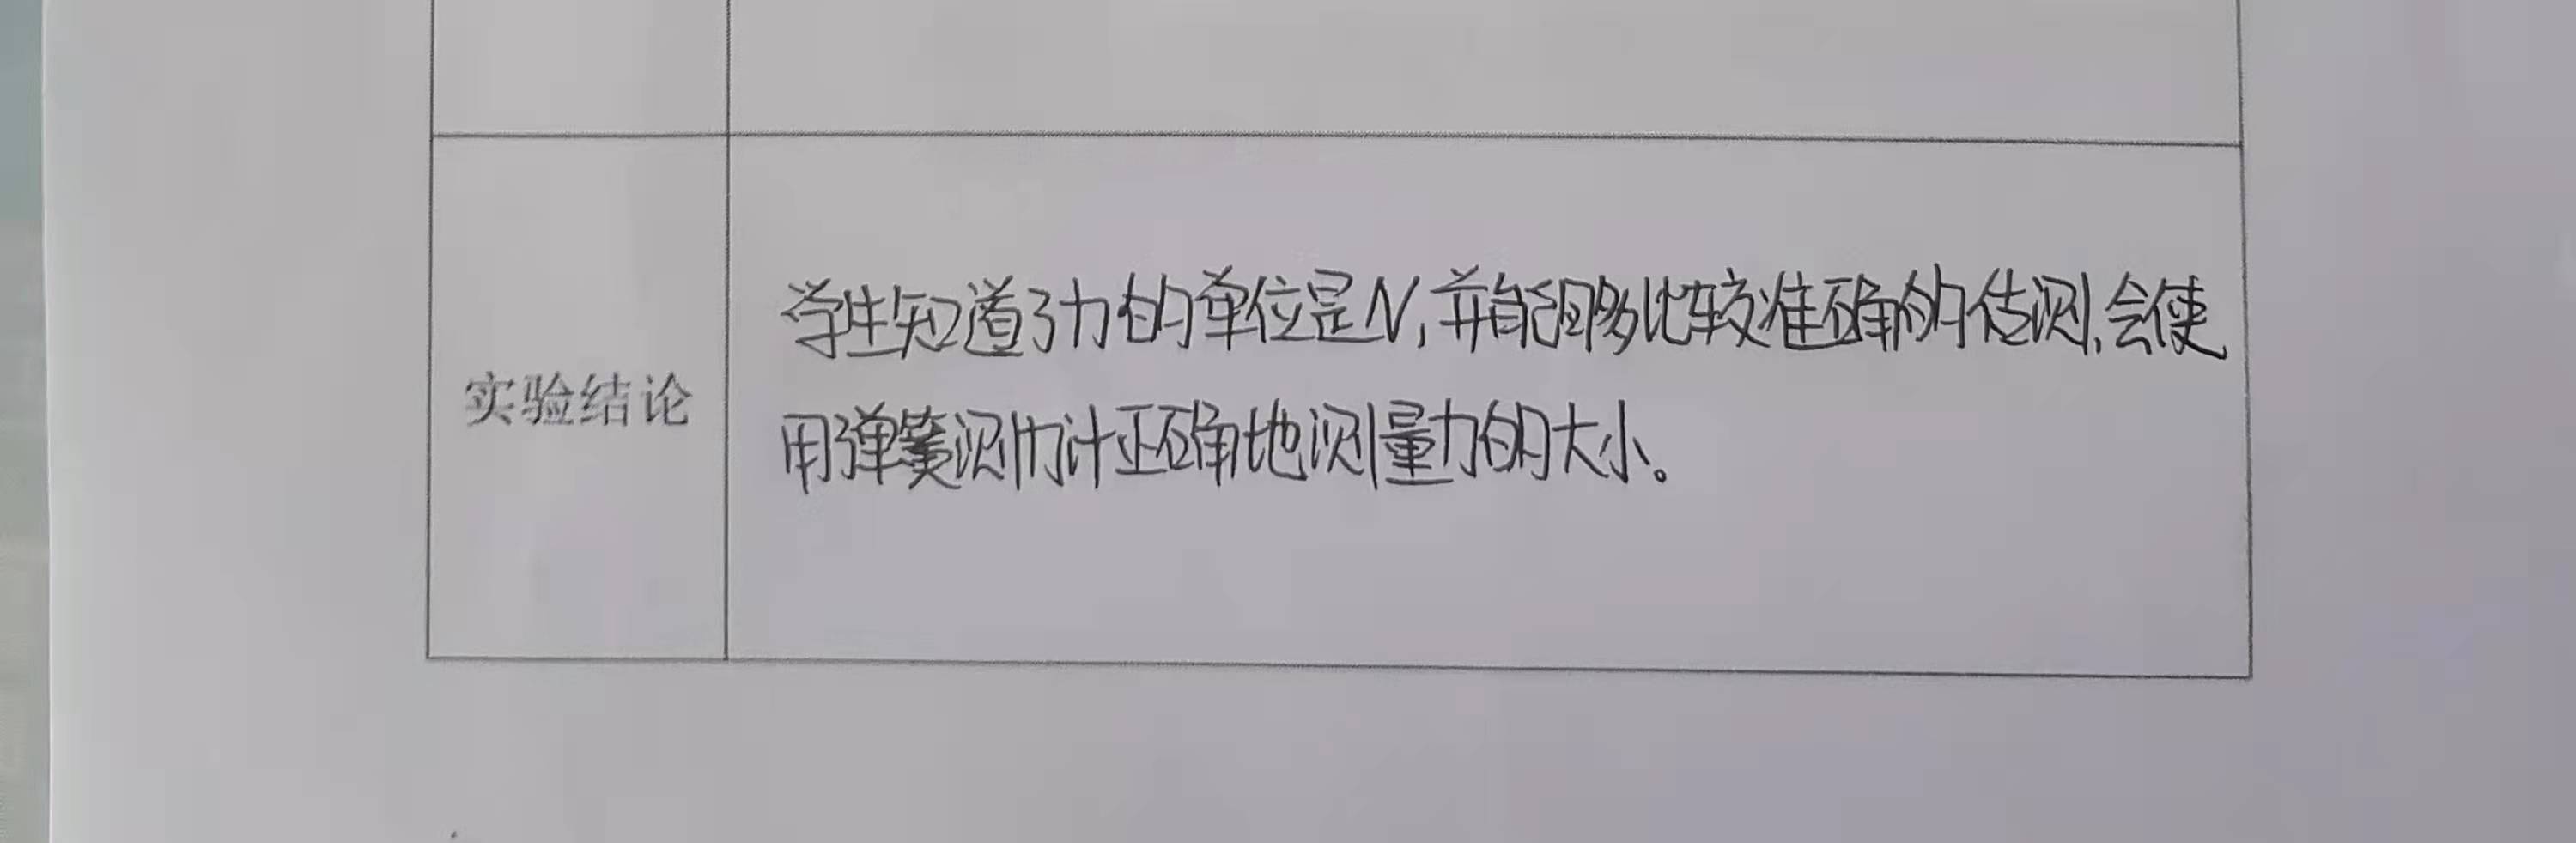 实验结论
学生知道了力的单位是N,并能够比较准确的估测,会使
用弹簧测力计正确地测量力的大小。